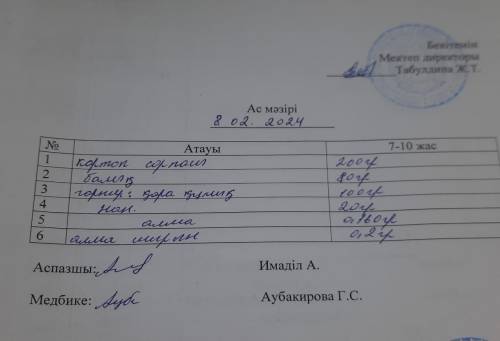 Бекітемін
Мектеп директоры
Табулдина Ж.Т.
Ас мәзірі
8. 02. 2024
№ Атауы 7-10 жас
1 картоп сорпасы 200гр
2 балық 80гр
3 гарнир: қара құмық 100гр
4 нан. 20гр
5 алма 0,160гр
6 алма шырын 0,2гр
Аспазшы: Имаділ А.
Медбике: Аубакирова Г.С.